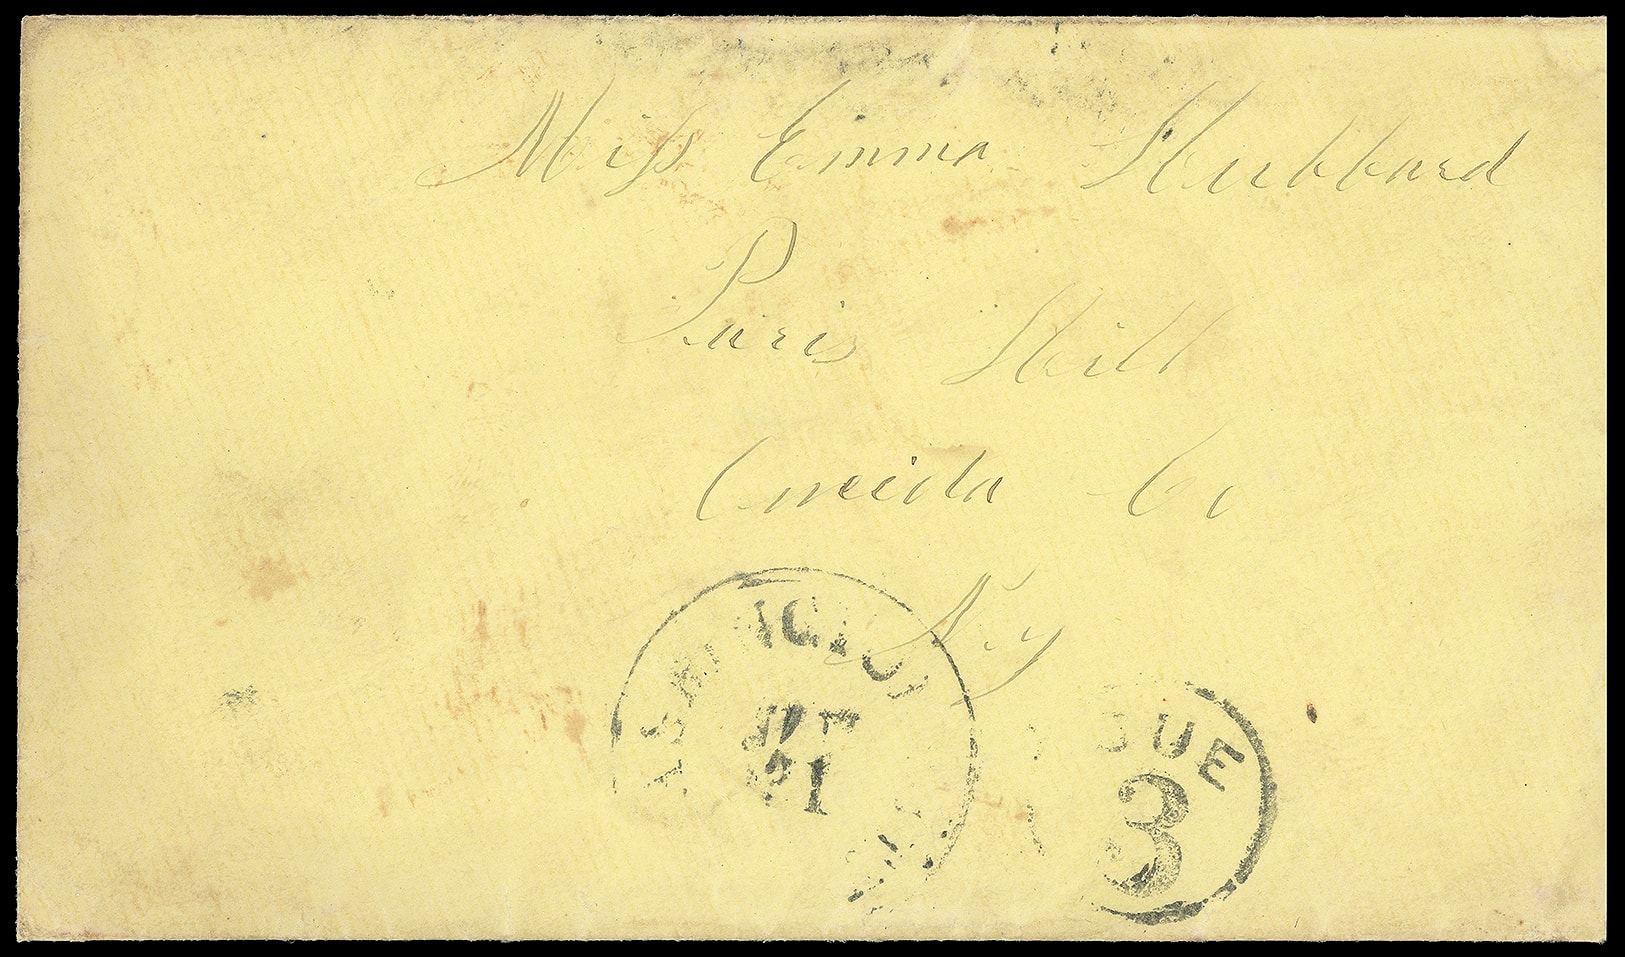 Miss Emma Hubbard
Paris Hill
Oneida Co
N.y
WASHINGTON
21
DUE
3